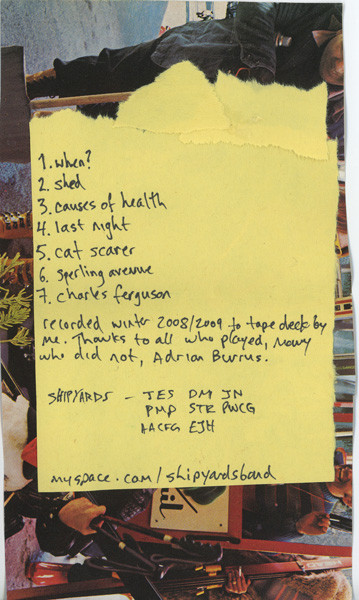 1. when?
2. shed
3. causes of health
4. last night
5. cat scarer
6. sperling avenue
7. charles ferguson
recorded winter 2008/2009 to tape deck by
me. Thanks to all who played,
who did not, Adrian Burrus.
SHIPYARDS – JES DM JN
PMP STR PWCG
AACFG EJH
myspace.com/shipyardsband